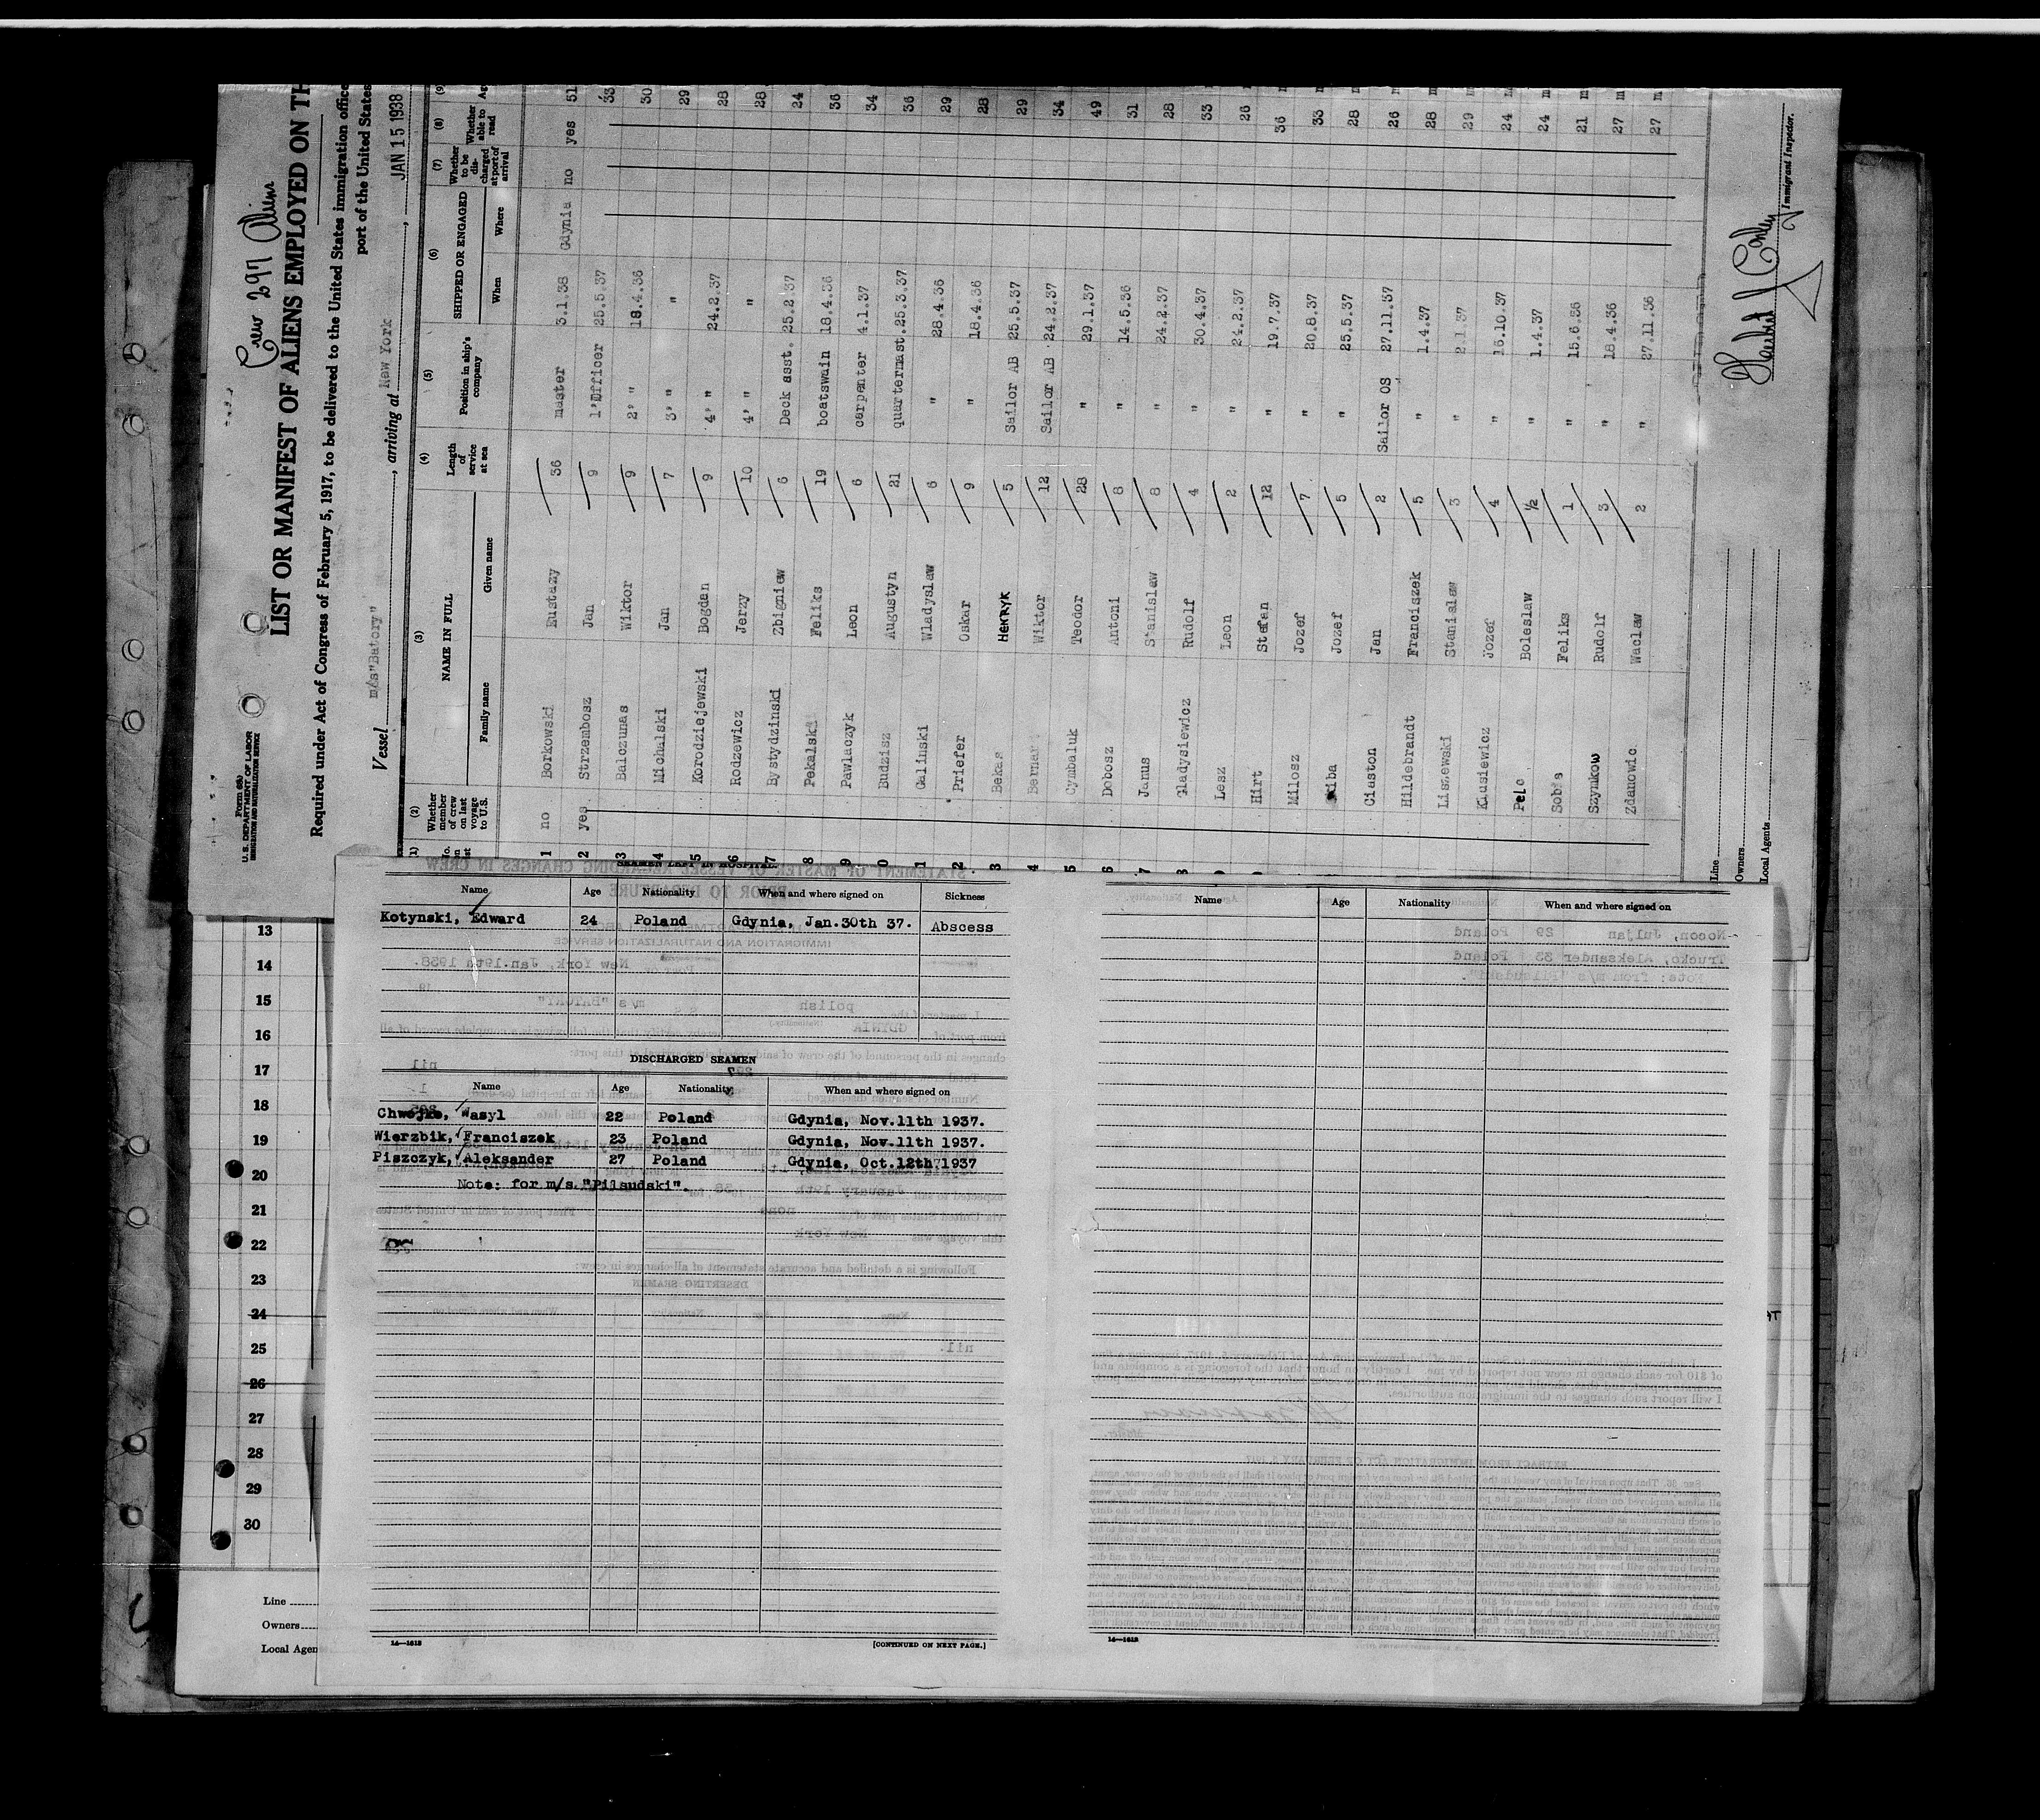 Crew 297 Aliens
Form 680
U. S. DEPARTMENT OF LABOR
IMMIGRATION AND NATURALIZATION SERVICE
LIST OR MANIFEST OF ALIENS EMPLOYED ON TH
Required under Act of Congress of February 5, 1917, to be delivered to the United States immigration office
port of the United States
Vessel m/s"Batory" , arriving at New York , JAN 15 1938
(2) (3) (4) (5) (6) (7) (8)
Whether member of crew on last voyage to U.S. NAME IN FULL Length of service at sea Position in ship's company SHIPPED OR ENGAGED Whether to be discharged at port of arrival Whether able to read
Family name Given name When Where
1 no Borkowski Eustazy 36 master 3.1.38 Gdynia no yes 51
2 yes Strzembosz Jan 9 1'Officer 25.5.37 33
3 Balczunas Wiktor 9 2' " 18.4.36 30
4 Michalski Jan 7 3' " " 29
5 Korodziejewski Bogdan 9 4' " 24.2.37 28
6 Rodzewicz Jerzy 10 4' " " 28
7 Bystydzinski Zbigniew 6 Deck asst. 25.2.37 24
8 Pekalski Feliks 19 boatswain 18.4.36 36
9 Pawlaczyk Leon 6 carpenter 4.1.37 34
0 Budzisz Augustyn 21 quartermast. 25.3.37 36
1 Galinski Wladyslaw 6 " 28.4.36 29
2 Priefer Oskar 9 " 18.4.36 28
3 Bekas HENRYK 5 Sailor AB 25.5.37 29
4 Wiktor 12 Sailor AB 24.2.37 34
5 Cymbaluk Teodor 28 " 29.1.37 49
6 Dobosz Antoni 8 " 14.5.36 31
7 Janus Stanislaw 8 " 24.2.37 28
8 Gladysiewicz Rudolf 4 " 30.4.37 33
Lesz Leon 2 " 24.2.37 26
Hirt Stefan 12 " 19.7.37 36
Milosz Jozef 7 " 20.8.37 33
Jozef 5 " 25.5.37 28
Ciaston Jan 2 Sailor OS 27.11.37 26
Hildebrandt Franciszek 5 " 1.4.37 28
Liszewski Stanislaw 3 " 2.1.37 29
Klusiewicz Jozef 4 " 16.10.37 24
Pelc Boleslaw ½ " 1.4.37 24
Soba Feliks 1 " 15.6.36 21
Szymkow Rudolf 3 " 18.4.36 27
Zdanowic Waclaw 2 " 27.11.36 27
Line
Owners
Local Agents
Immigrant Inspector.
SEAMEN LEFT IN HOSPITAL
Name Age Nationality When and where signed on Sickness
Kotynski, Edward 24 Poland Gdynia, Jan.30th 37. Abscess
DISCHARGED SEAMEN
Name Age Nationality When and where signed on
Chwojko, Wasyl 22 Poland Gdynia, Nov.11th 1937.
Wierzbik, Franciszek 23 Poland Gdynia, Nov.11th 1937.
Piszczyk, Aleksander 27 Poland Gdynia, Oct.12th 1937
Note: for m/s."Pilsudski".
14—1612
[CONTINUED ON NEXT PAGE.]
Name Age Nationality When and where signed on
14—1612
13
14
15
16
17
18
19
20
21
22
23
24
25
26
27
28
29
30
Line
Owners
Local Agen